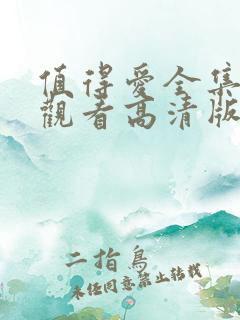 值得爱全集
觀看高清版
二指鳥
未经同意禁止转载